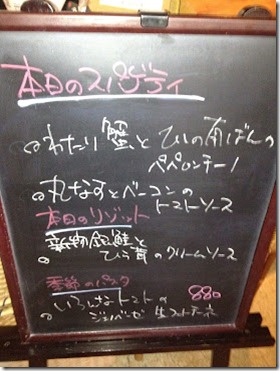 本日のスパゲティ
わたり蟹と 南ばんの
ペペロンチーノ
丸なすとベーコンの
トマトソース
本日のリゾット
新物銀鮭と
ひら茸のクリームソース
季節のパスタ
いろんなトマトの 880
ジェノベーゼ 生フェットチーネ